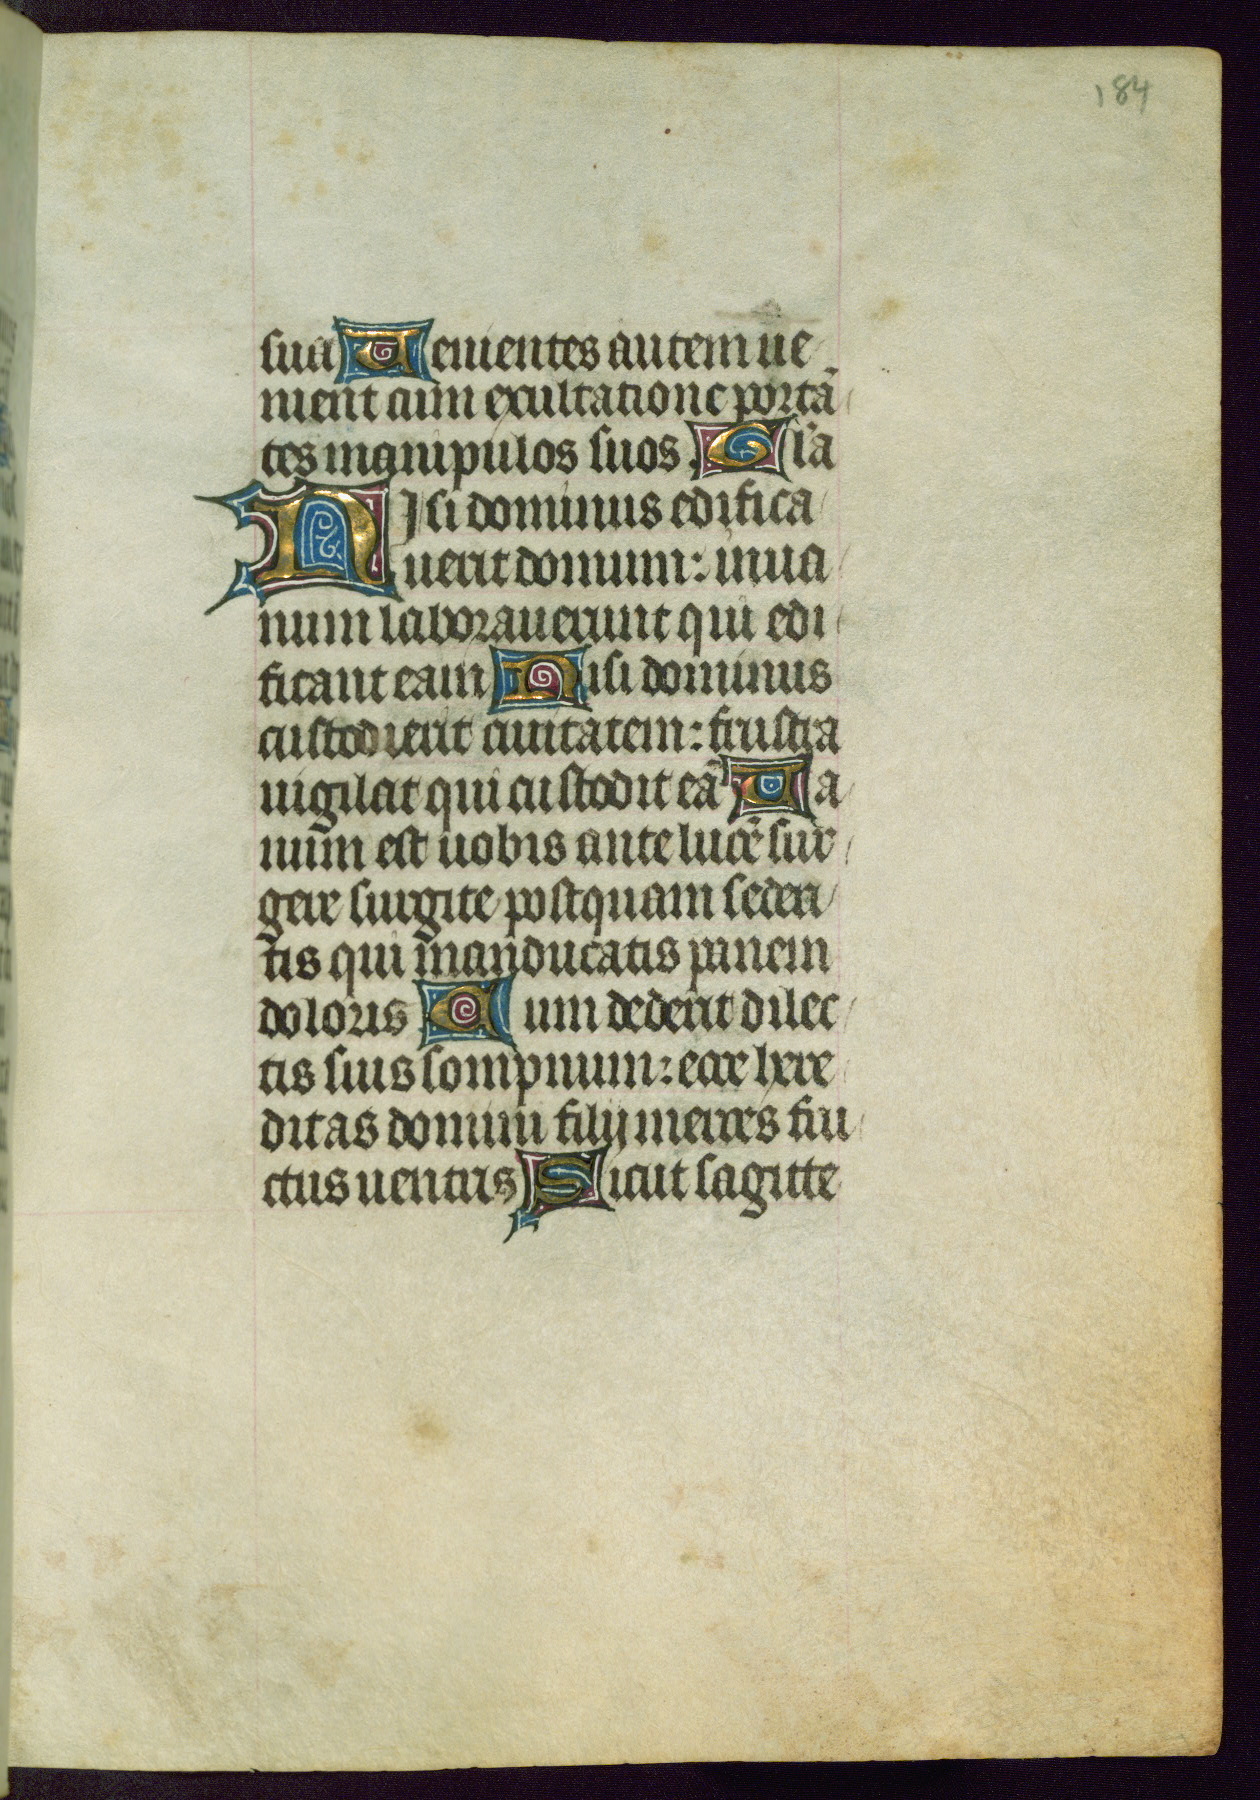 184
sua Uenientes autem ue
nient cum exultatione portā
tes manipulos suos Gl'a
Nisi dominus edifica
uerit domum: inua
num laborauerunt qui edi
ficant eam Nisi dominus
custodierit ciuitatem: frustra
uigilat qui custodit eā Ua
num est uobis ante lucē sur
gere surgite postquam sederi
tis qui manducatis panem
doloris Cum dederit dilec
tis suis sompnum: ecce here
ditas domini filij merces fru
ctus uentris Sicut sagitte